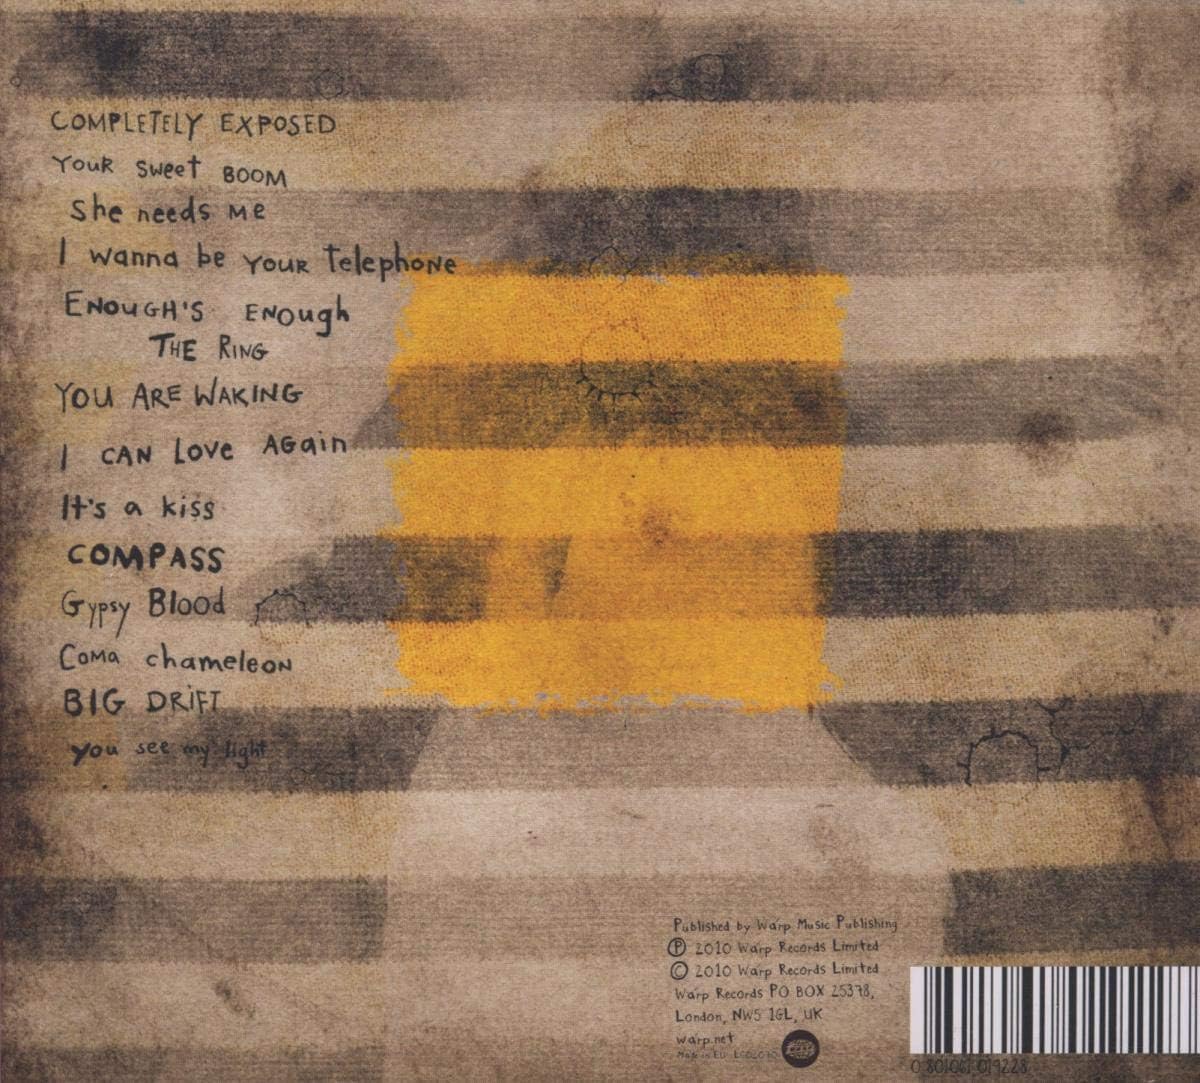 COMPLETELY EXPOSED
YOUR Sweet BOOM
She needs ME
I wanna be YOUR Telephone
ENOUGH'S ENOugh
THE RING
YOU ARE WAKING
I CAN Love AGain
It's a kiss
COMPASS
Gypsy Blood
Coma chameleon
BIG DRiFT
you see my light
Published by Warp Music Publishing
Ⓟ 2010 Warp Records Limited
© 2010 Warp Records Limited
Warp Records PO BOX 25378,
London, NW5 1GL, UK
warp.net
Made in EU
0 801061 019228